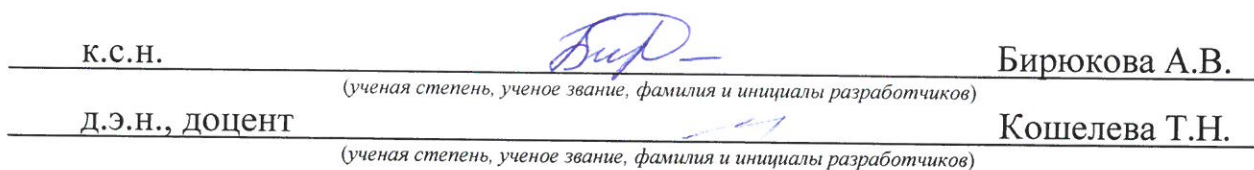 к.с.н. Бир Бирюкова А.В.
(ученая степень, ученое звание, фамилия и инициалы разработчиков)
д.э.н., доцент Кошелева Т.Н.
(ученая степень, ученое звание, фамилия и инициалы разработчиков)